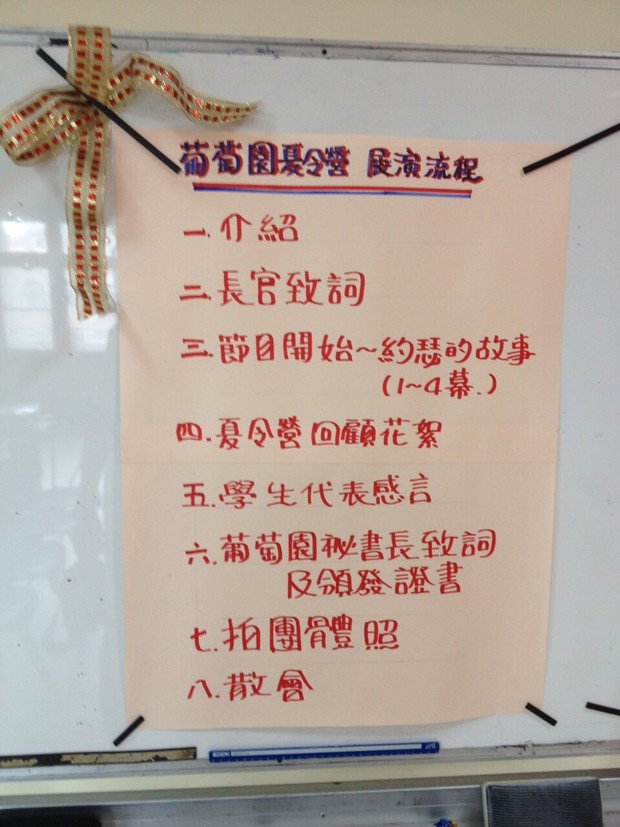 葡萄園夏令營 展演流程
一.介紹
二.長官致詞
三.節目開始~約瑟的故事
(1~4幕.)
四.夏令營回顧花絮
五.學生代表感言
六.葡萄園祕書長致詞
及頒發證書
七.拍團體照
八.散會